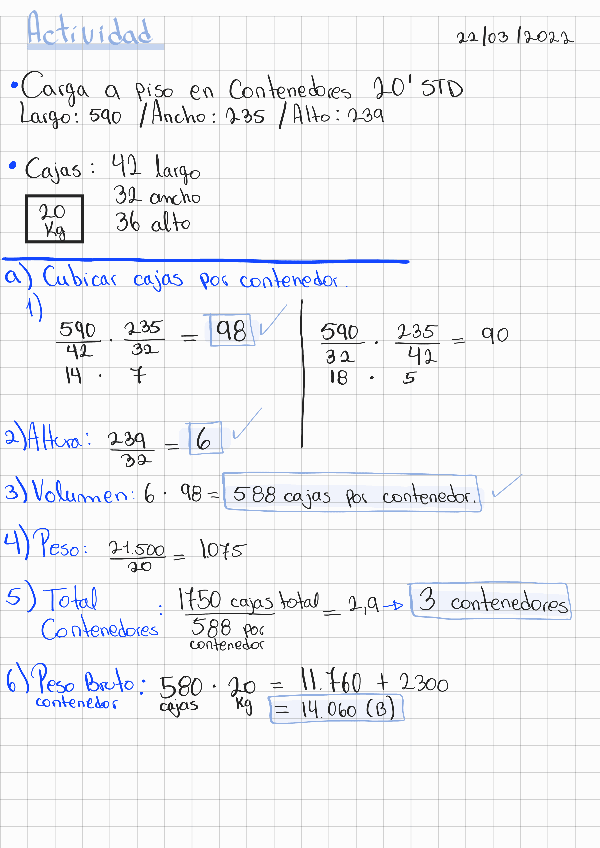 Actividad
22/03/2022
• Carga a piso en Contenedores 20' STD
Largo: 590 / Ancho: 235 / Alto: 239
• Cajas: 42 largo
32 ancho
36 alto
20
Kg
a) Cubicar cajas por contenedor.
1)
590/42 · 235/32 = 98 ✓
14 · 7
590/32 · 235/42 = 90
18 · 5
2) Altura: 239/32 = 6 ✓
3) Volumen: 6 · 98 = 588 cajas por contenedor. ✓
4) Peso: 21.500/20 = 1075
5) Total Contenedores : 1750 cajas total / 588 por contenedor = 2,9 → 3 contenedores
6) Peso Bruto contenedor : 580 cajas · 20 Kg = 11.760 + 2300
= 14.060 (B)